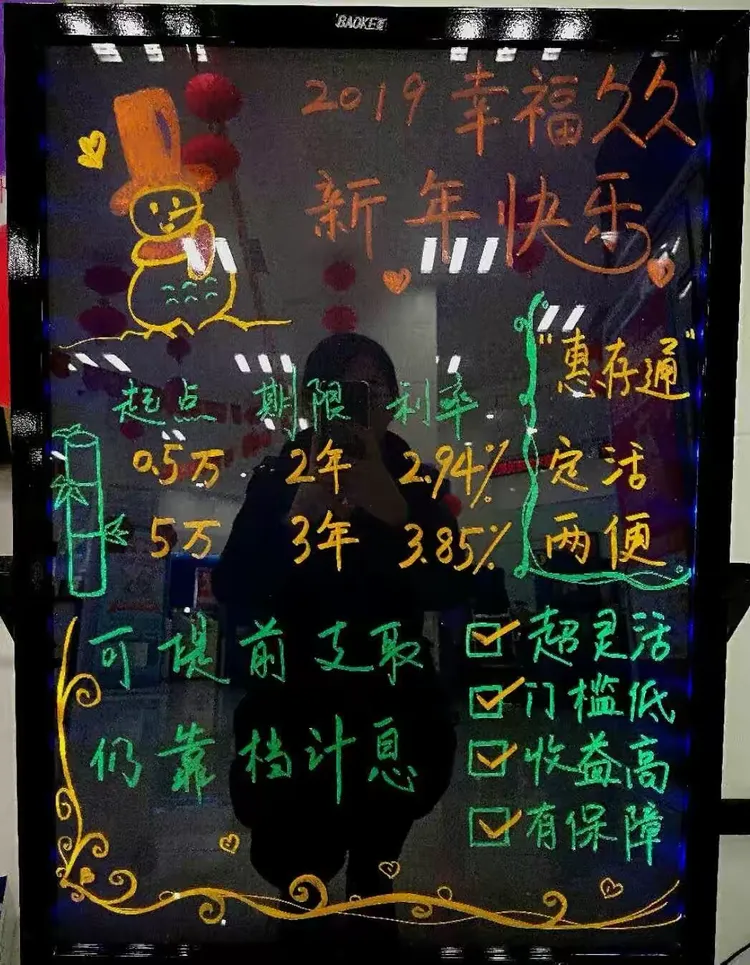 BAOKE
2019 幸福久久
新年快乐
"惠存通"
定活
两便
起点 期限 利率
0.5万 2年 2.94%
5万 3年 3.85%
可堤前支取
仍靠档计息
超灵活
门槛低
收益高
有保障